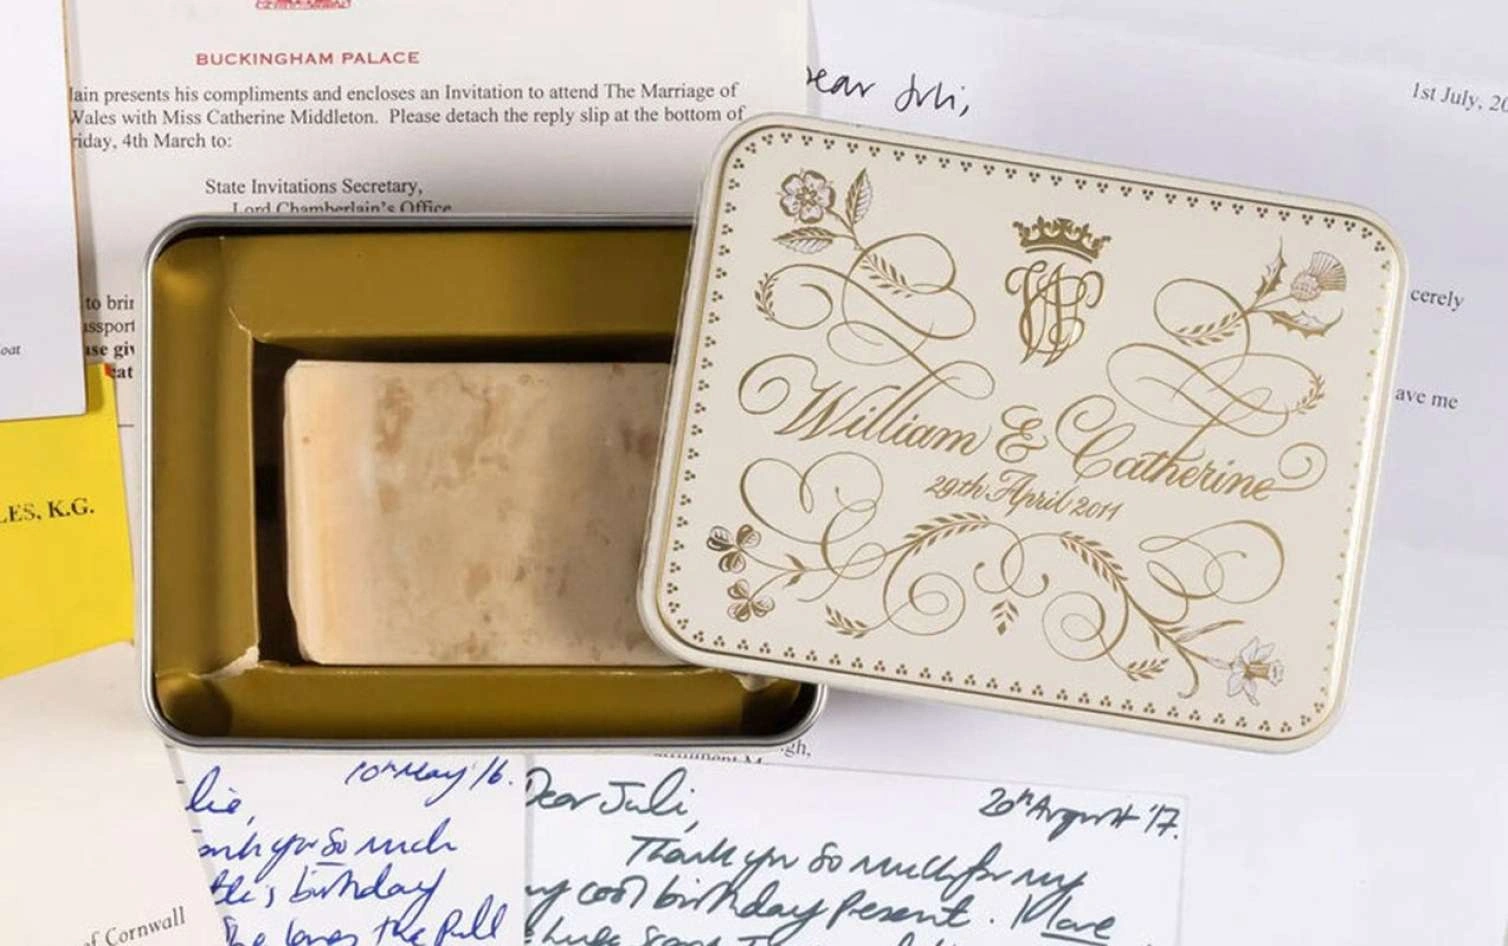 BUCKINGHAM PALACE
lain presents his compliments and encloses an Invitation to attend The Marriage of
Wales with Miss Catherine Middleton. Please detach the reply slip at the bottom of
riday, 4th March to:
State Invitations Secretary,
Lord Chamberlain's Office
to brin
assport
ase giv
eat
oat
LES, K.G.
of Cornwall
ear Juli,
1st July, 20
cerely
ave me
William & Catherine
29th April 2011
gh,
lie,
10th May '16.
ank you so much
birthday
She loves the Pull
Dear Juli,
20th August '17.
Thank you so much for my
my cool birthday present. I love